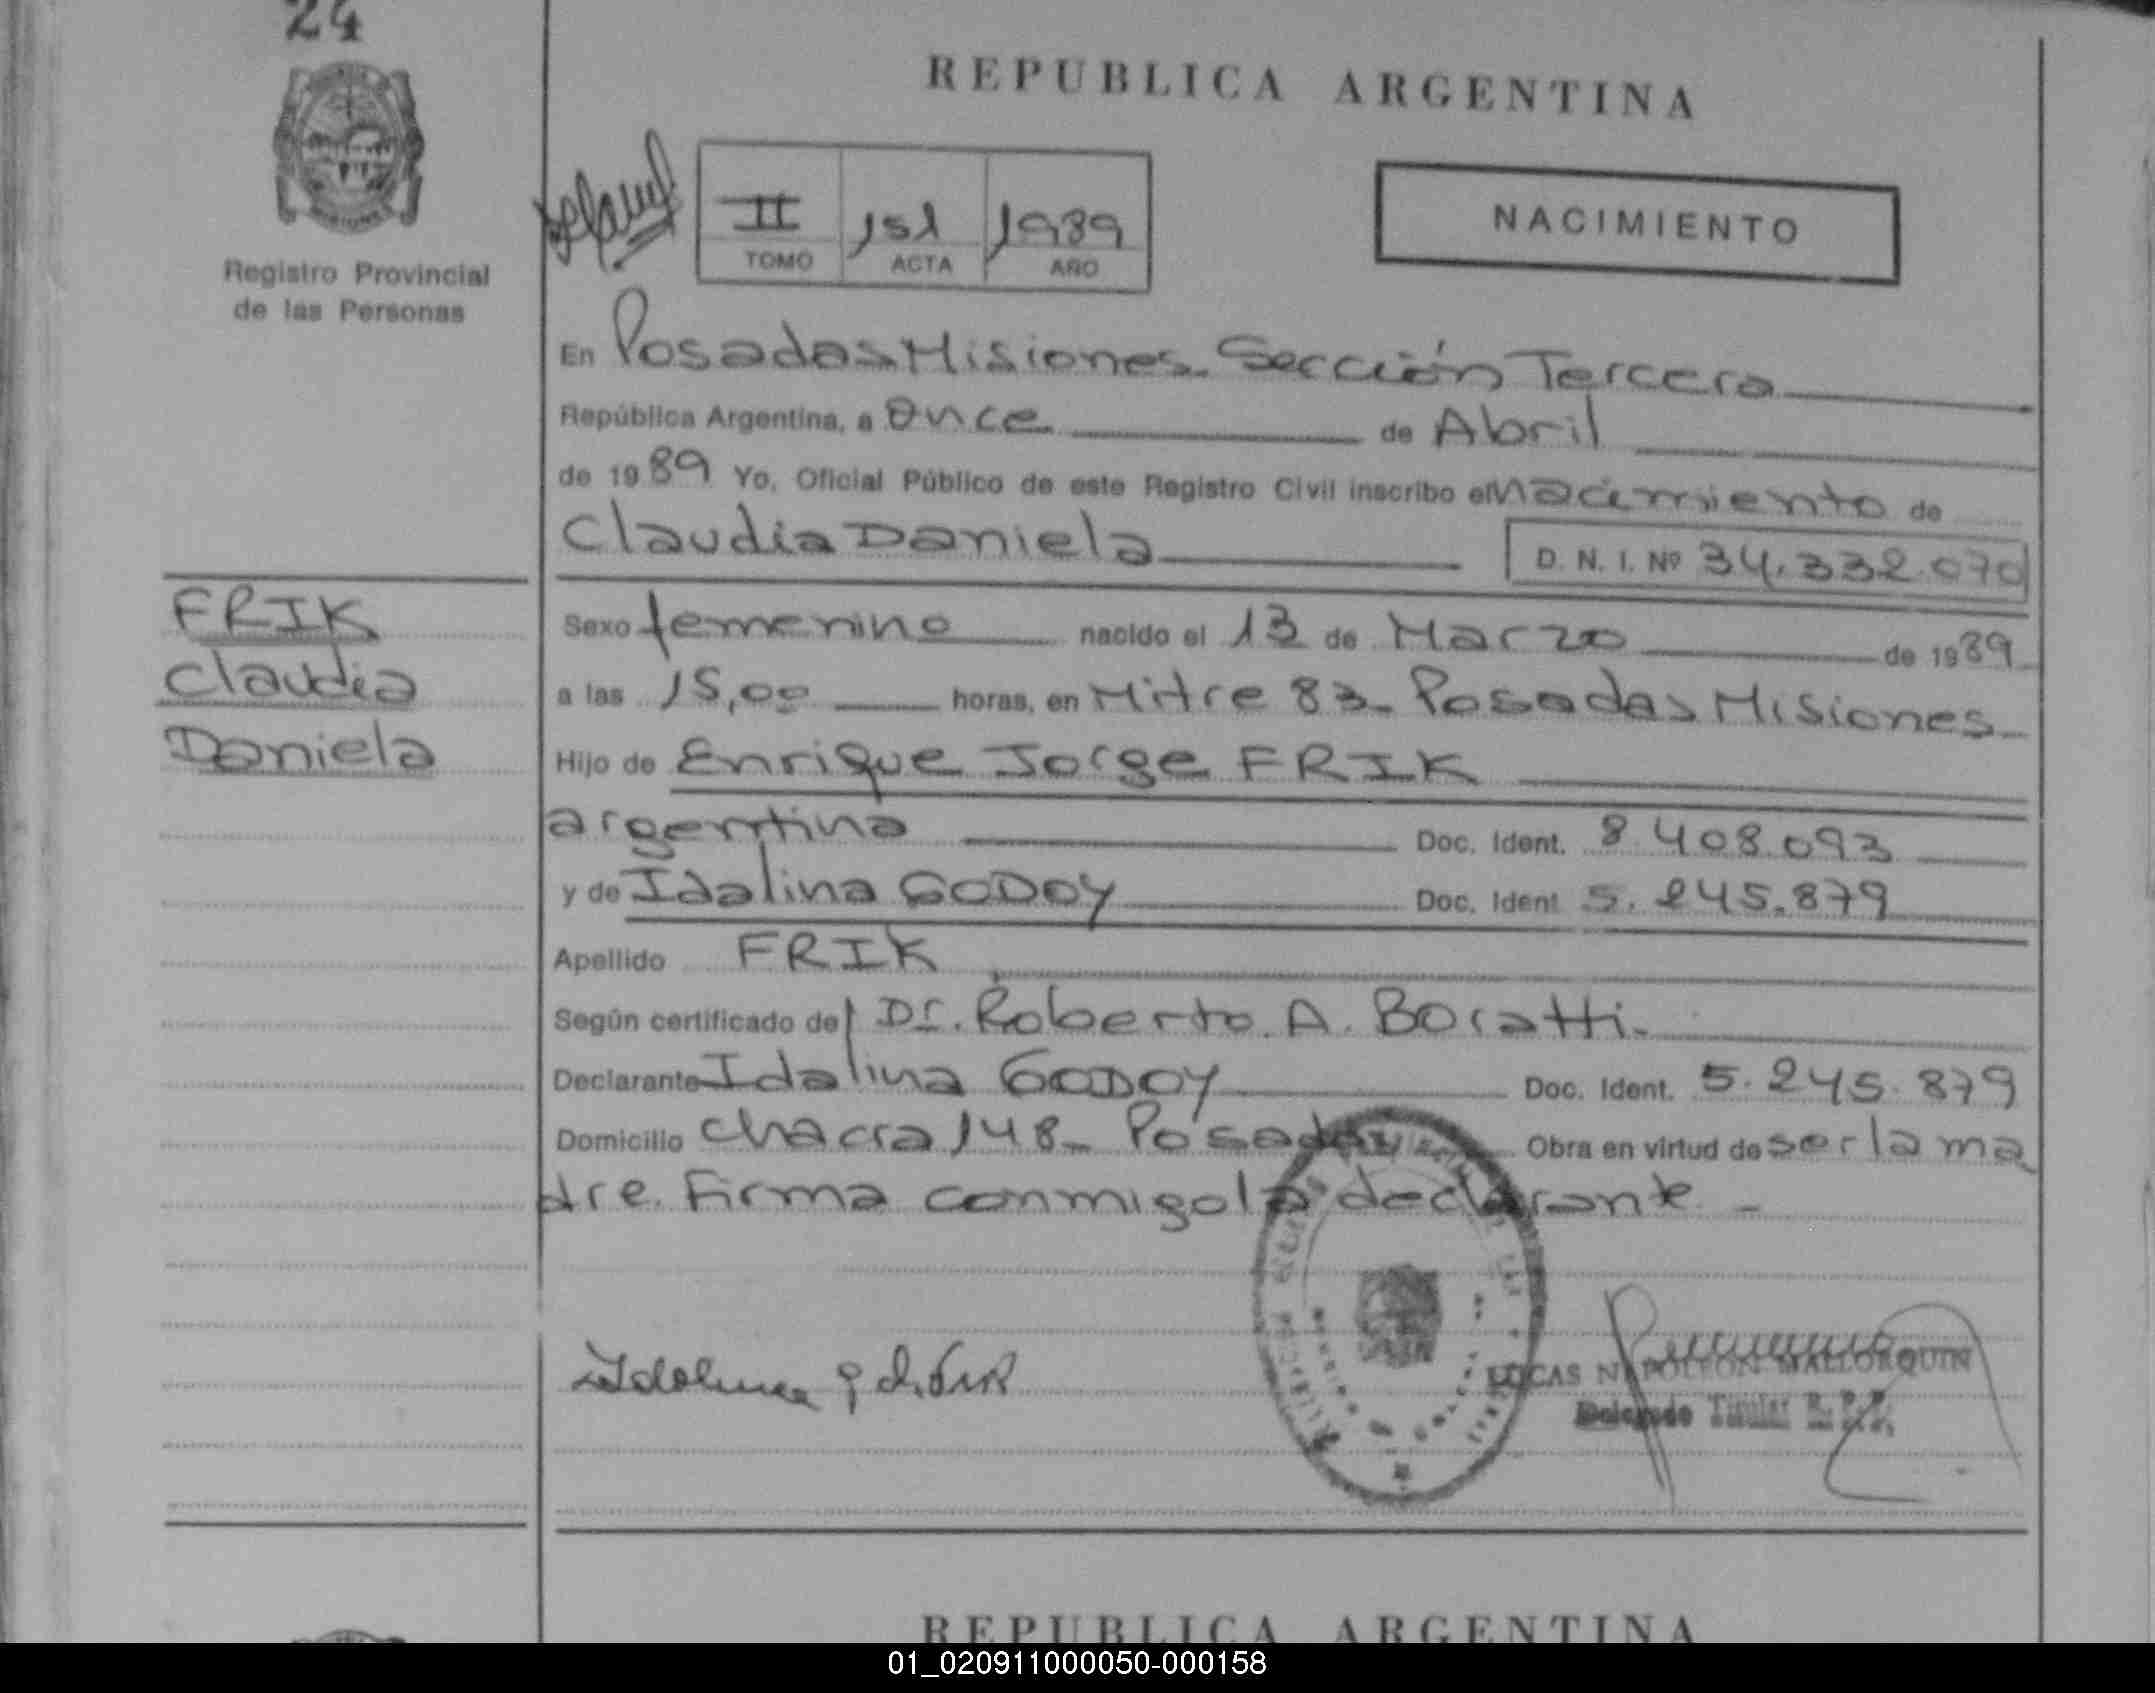 24
REPUBLICA ARGENTINA
Registro Provincial
de las Personas
II 151 1989
TOMO ACTA AÑO
NACIMIENTO
En Posadas Misiones. Sección Tercera
República Argentina, a Once de Abril
de 1989 Yo, Oficial Público de este Registro Civil inscribo el Nacimiento de
Claudia Daniela D. N. I. Nº 34.332.070
FRIK
Claudia
Daniela
Sexo femenino nacido el 13 de Marzo de 1989
a las 15,00 horas, en Mitre 83- Posadas Misiones-
Hijo de Enrique Jorge FRIK
argentina Doc. Ident. 8.408.093
y de Idalina GODOY Doc. Ident 5.245.879
Apellido FRIK
Según certificado del Dr. Roberto A. Boratti.
Declarante Idalina GODOY Doc. Ident. 5.245.879
Domicilio Chacra 148- Posadas Obra en virtud de ser la ma
dre. Firma conmigo la declarante. -
LUCAS NAPOLEON MALLORQUIN
Delegado Titular R. P. P.
REPUBLICA ARGENTINA
01_020911000050-000158